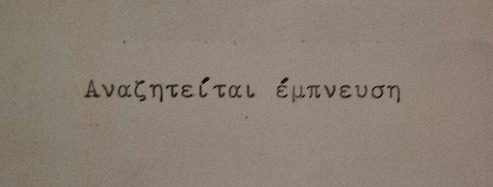 Αναζητείται έμπνευση